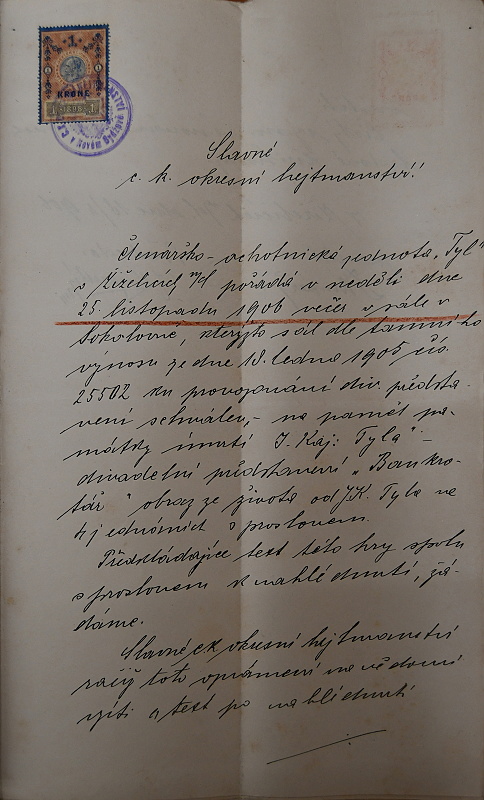 1
KRONE
1 1898 1
Slavné
c. k. okresní hejtmanství!
Čtenářsko-ochotnická jednota „Tyl“
v Žiželicích n/C pořádá v neděli dne
25. listopadu 1906 večer v sále v
Sokolovně, kterýžto sál dle tamního
výnosu ze dne 18. ledna 1905 čís.
25502 ku provozování div. předsta-
vení schválen,- na paměť pa-
mátky úmrtí J. Kaj. Tyla" -
divadelní představení „Bankro-
tář" obraz ze života od J. K. Tyla ve
4 jednáních s proslovem.
Předkládajíce text této hry spolu
s proslovem k nahlédnutí, žá-
dáme.
Slavné ck okresní hejtmanství
račiž toto oznámení na vědomí
vzíti a text po nahlédnutí